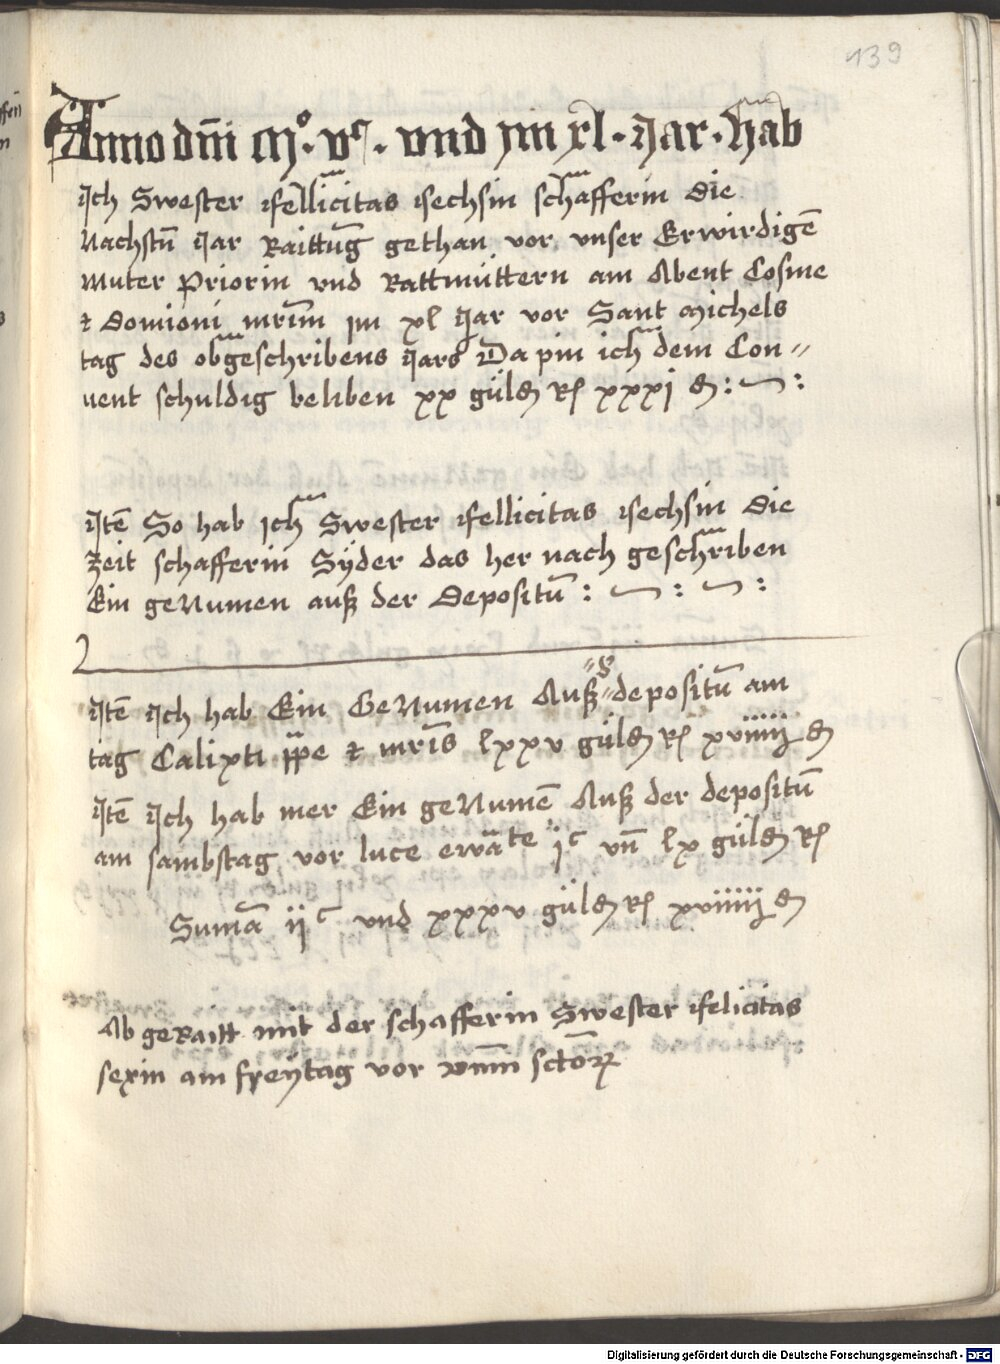 139
Anno dm̄i m°. vᶜ. vnd jm xl. Jar. Hab
Jch Swester ffellicitas ffechsin schafferin die
Nachstn̄ Jar Raittūg gethan vor vnser Erwirdigē
Muter Priorin vnd Rattmüttern am Abent Cosme
et Domioni mrīm jm xl Jar vor Sant Michels
tag des obgeschribens Jars Da pin ich dem Con=
uent schuldig beliben xx güld R xxxj d : ~ :
Jtē So hab ich Swester ffellicitas ffechsin die
Zeit schafferin Syder das her nach geschriben
Ein geNumen auß der Depositū : ~ : ~ :
Jtē Jch hab Ein GeNumen Auß der depositū am
tag Calixti ppe et mrīs lxxv güld R xviiij d
Jtē Jch hab mer Ein geNumē Auß der depositū
am sambstag vor luce ewāte jᶜ vn̄ lx güld R
Sumā ijᶜ vnd xxxv güld R xviiij d
Ab geRaitt mit der schafferin Swester ffelicitas
sexin am freÿtag vor om̄m sctōrꝝ
Digitalisierung gefördert durch die Deutsche Forschungsgemeinschaft - DFG